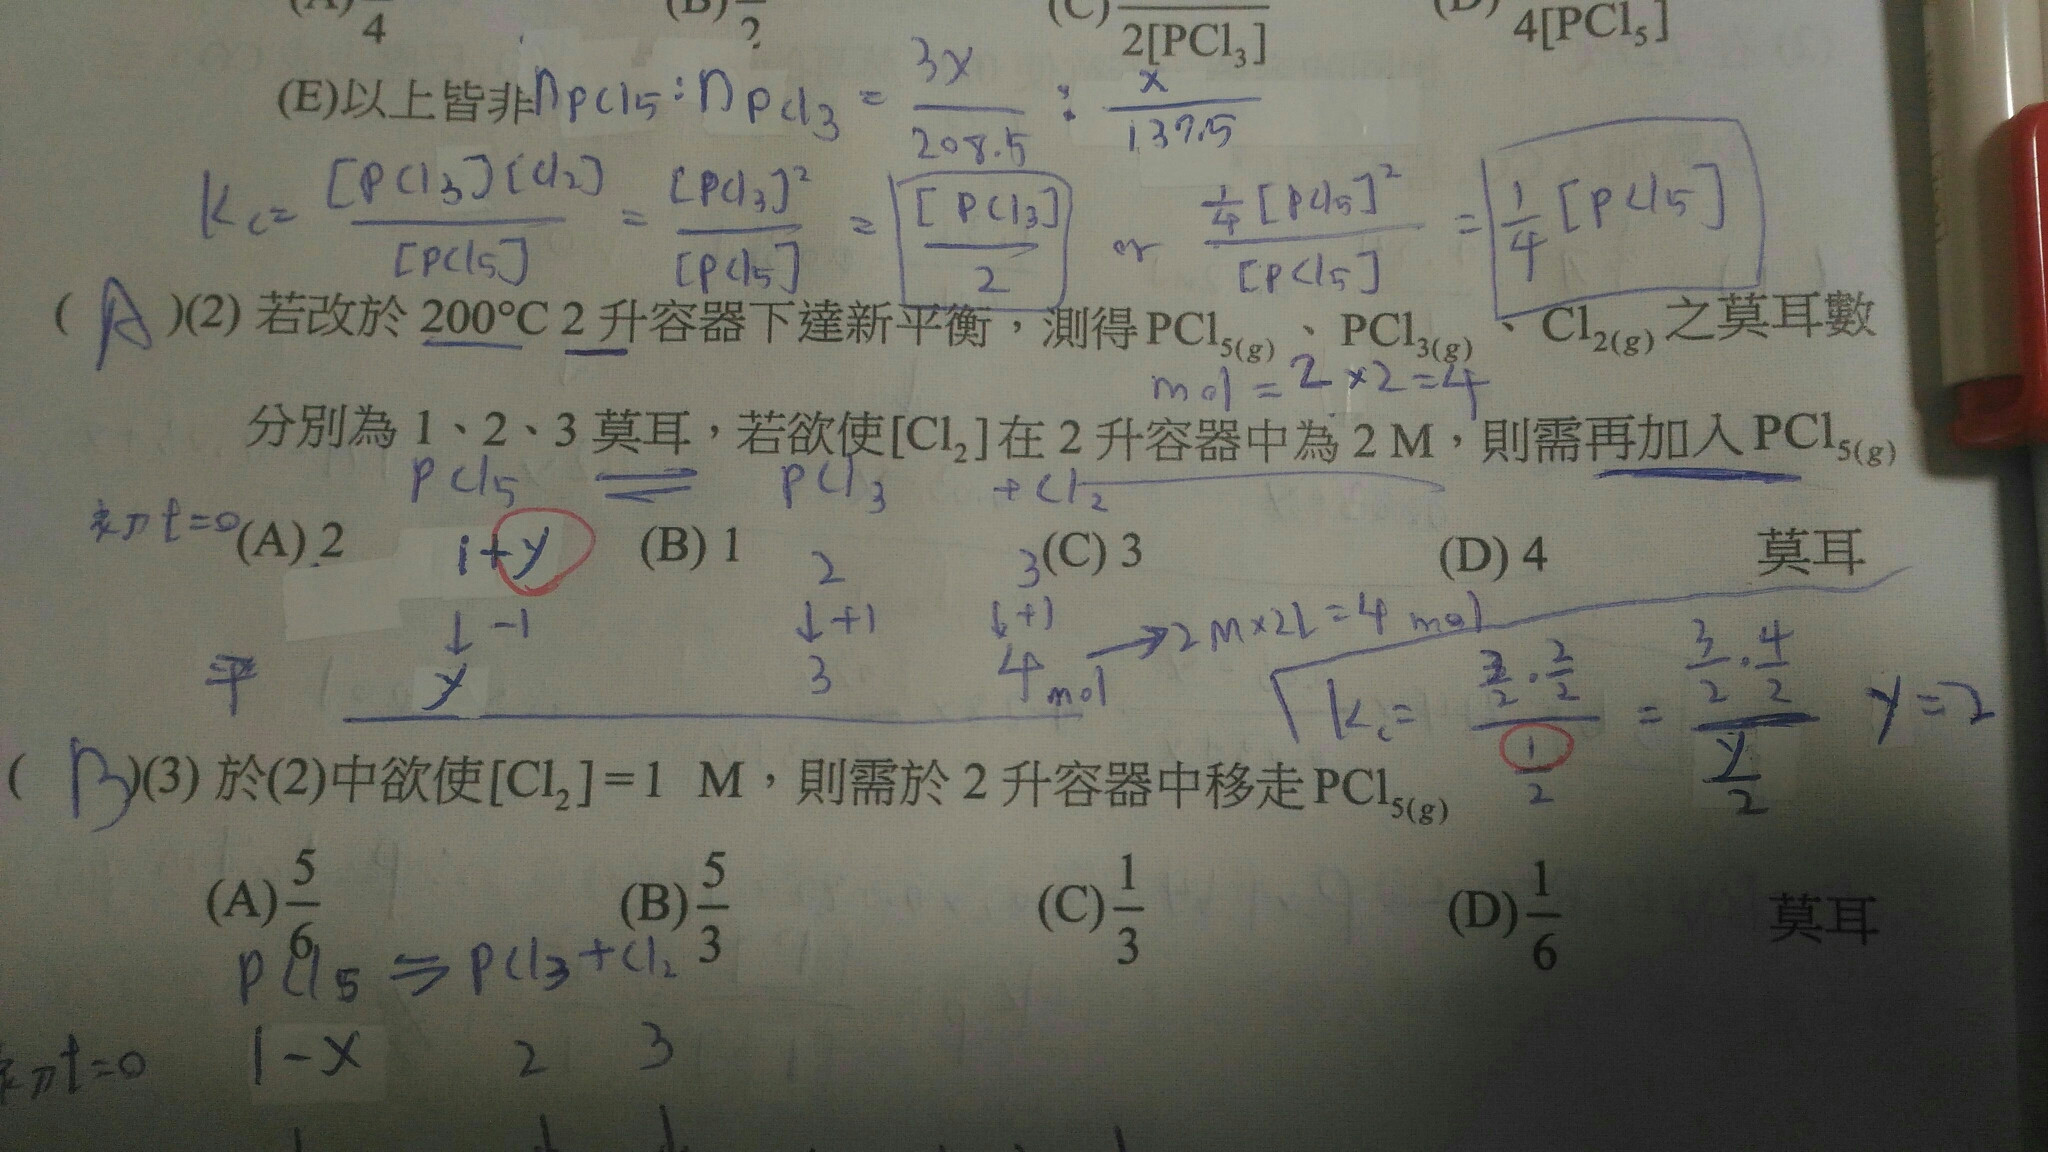 (A) 4 (B) 2 (C) 2[PCl₃] (D) 4[PCl₅]
(E)以上皆非 nPCl5 : nPCl3 = 3x/208.5 : x/137.5
Kc = [PCl3][Cl2]/[PCl5] = [PCl3]²/[PCl5] = [PCl3]/2 or ¼[PCl5]²/[PCl5] = ¼[PCl5]
( A )(2) 若改於 200°C 2 升容器下達新平衡，測得PCl₅(g)、PCl₃(g)、Cl₂(g)之莫耳數
mol = 2×2=4
分別為 1、2、3 莫耳，若欲使[Cl₂]在 2 升容器中為 2 M，則需再加入PCl₅(g)
PCl5 ⇌ PCl3 + Cl2
初 t=0 1+y 2 3
(A) 2 (B) 1 (C) 3 (D) 4 莫耳
↓-1 ↓+1 ↓+1 → 2M×2L=4 mol
平 y 3 4 mol
Kc = = 3/2·4/2 / y/2 y=2
( B )(3) 於(2)中欲使[Cl₂]=1 M，則需於 2 升容器中移走PCl₅(g)
(A) 5/6 (B) 5/3 (C) 1/3 (D) 1/6 莫耳
PCl5 ⇌ PCl3 + Cl2
初t=0 1-x 2 3